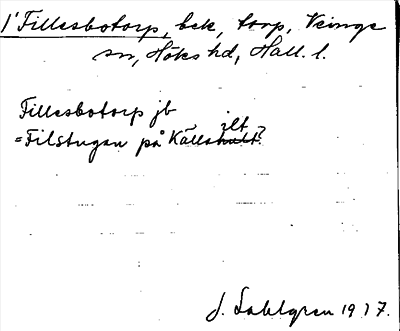 1' Fillesbotorp, bek, torp, Veinge
sn, Höks hd, Hall. l.
Fillesbotorp jb
ilt
=Filstugan på Källshult?
J. Sahlgren 1917.